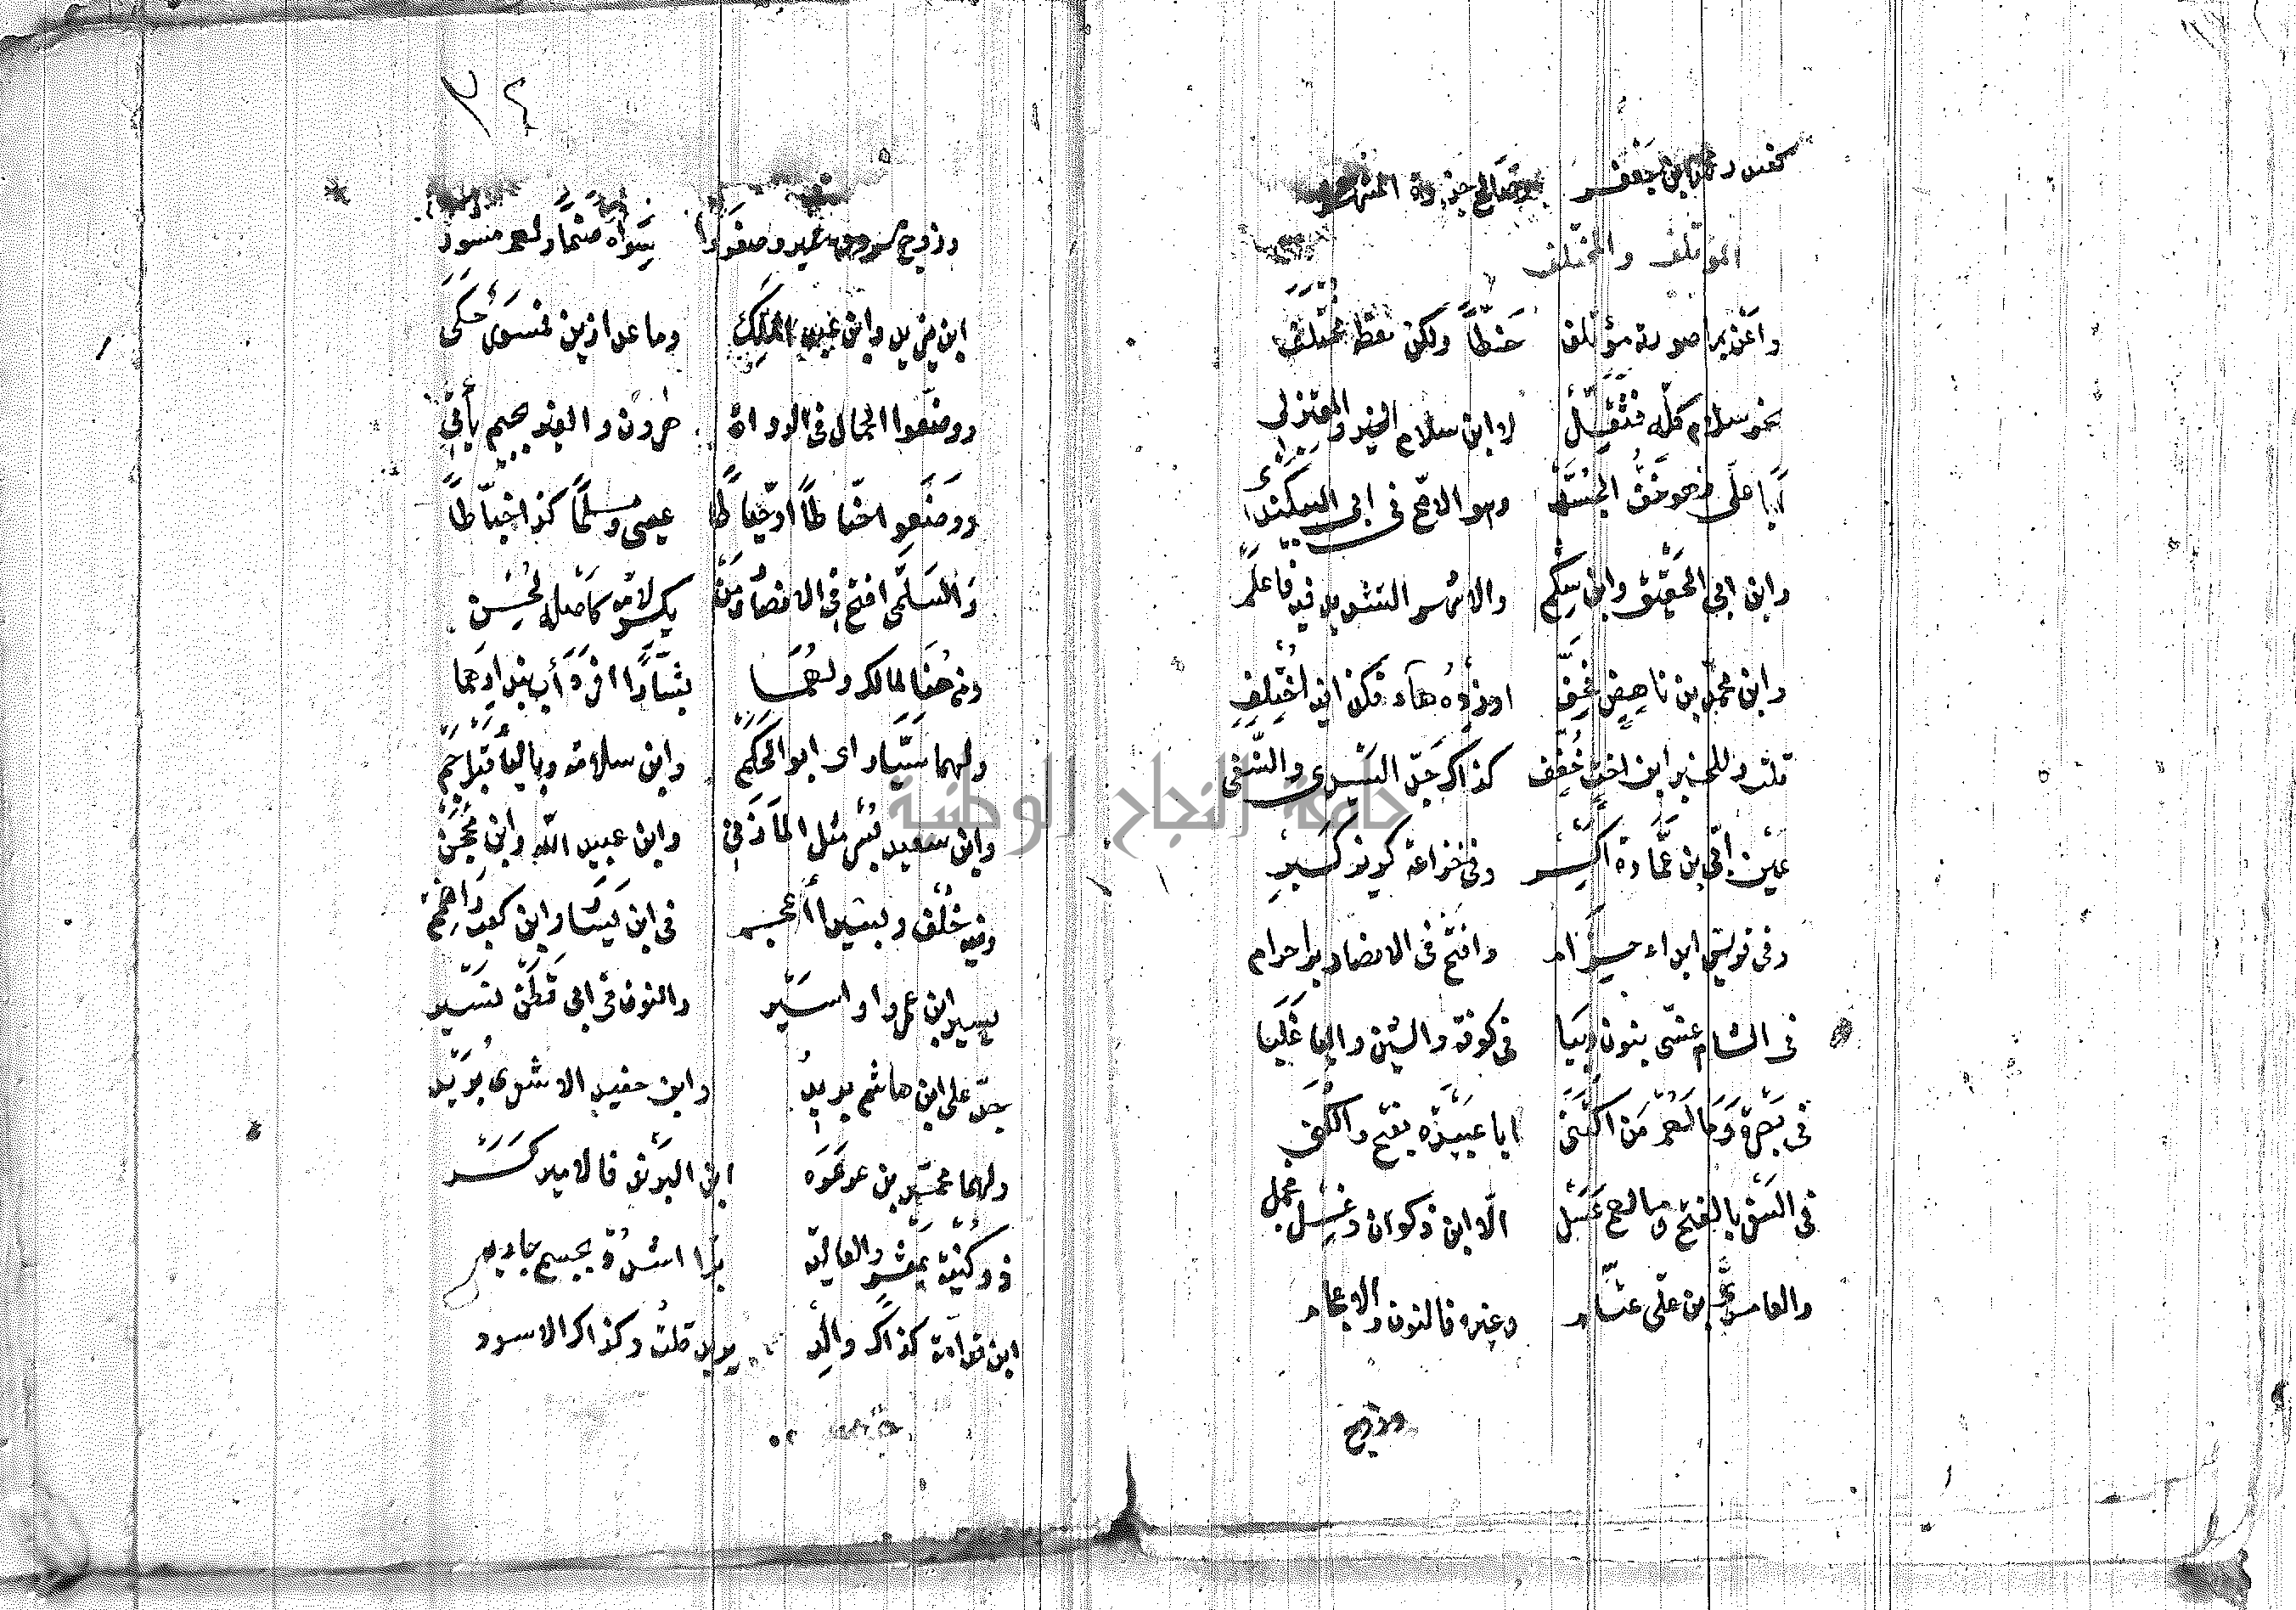 المؤتلف والمختلف
واعن بما صورته مؤتلف خطا ولكن لفظه مختلف
نحو سلام كله فثقل لا ابن سلام الحبر والمعتزلي
أبا علي فهو خف الجد وهو الاصح في ابي البيكندي
وابن ابي الحقيق وابن مشكم والاشهر التشديد فيه فاعلم
وابن محمد بن ناهض فخف او زده هاء فكذا فيه اختلف
قلت وللحبر ابن اخت خفف كذاك جد السيدي والنسفي
عين ابي بن عمارة اكسر وفي خزاعة كريز كبر
وفي قريش ابدا حزام وافتح في الانصار برا حرام
في الشام عنسي بنون وبيا في كوفة والشين واليا غلبا
في بصرة وما لهم من اكتنى ابا عبيدة بفتح والكنى
في السفر بالفتح وما لهم عسل الا ابن ذكوان وعسل فجمل
والعامري بن علي عثام وغيره فالنون والاعجام
وزوج
٣٤
وزوج مسروق قمير صغروا سواه ضما ولهم مسور
ابن يزيد وابن عبد الملك وما عدا ذين فمسور حكي
ووصفوا الحمال في الرواة هرون والغير بجيم يأتي
ووصفوا حناطا او خباطا عيسى ومسلما كذا خياطا
والسلمي افتح في الانصار ومن يكسر لامه كاصله لحن
ومن هنا لمالك ولهما بشارا افرد أب بندارهما
ولهما سيار اي ابو الحكم وابن سلامة وباليا قبل جم
وابن سعيد بسر مثل المازني وابن عبيد الله وابن محجن
وفيه خلف وبشيرا أعجم في ابن يسار وابن كعب واضمم
يسير ابن عمرو او اسير والنون في ابي قطن نسير
جد علي ابن هاشم بريد وابن حفيد الاشعري بريد
ولهما محمد بن عرعره ابن البرند فالامير كسره
ذو كنية بمعشر والعاليه برا اشدد وبجيم جاريه
ابن قدامة كذاك والد يزيد قلت وكذاك الاسود
جامعة النجاح الوطنية